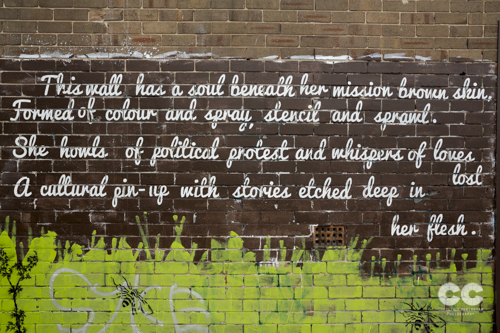 This wall has a soul beneath her mission brown skin,
Formed of colour and spray, stencil and sprawl.
She howls of political protest and whispers of loves
lost
A cultural pin-up with stories etched deep in
her flesh.
CC